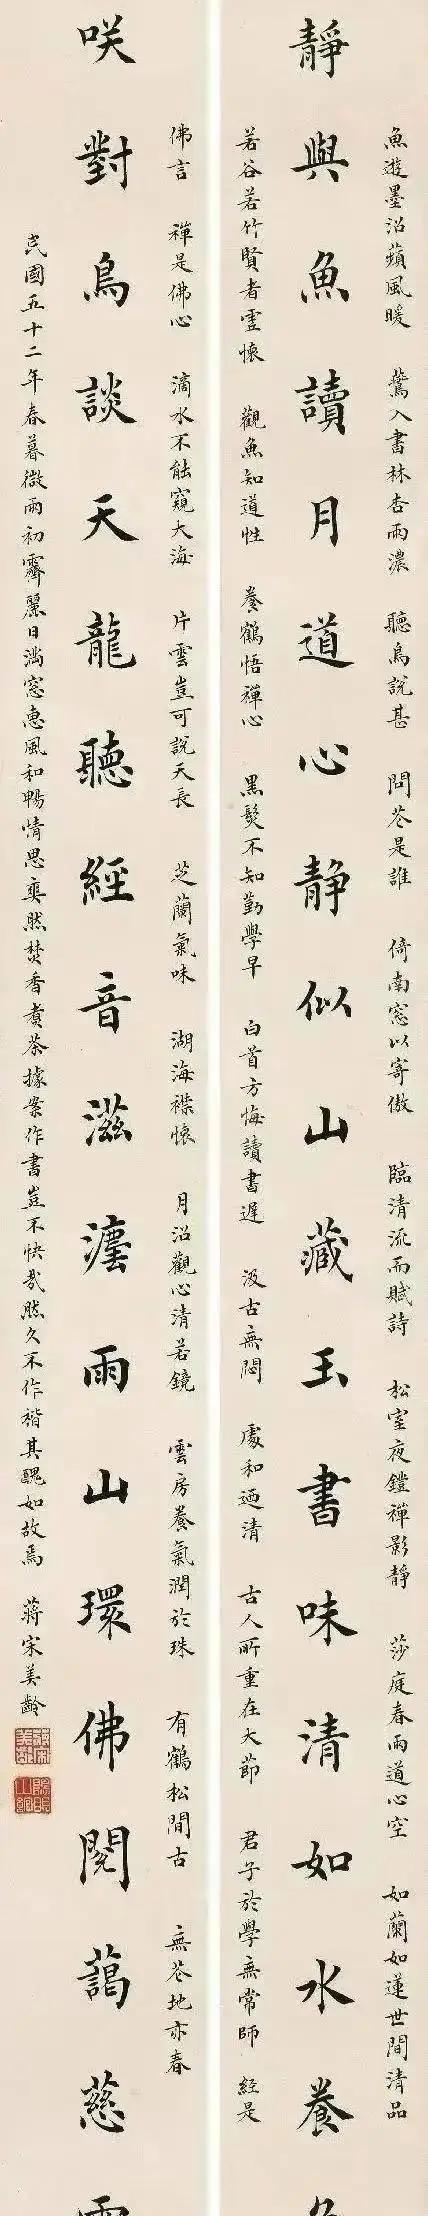 魚遊墨沼蘋風暖 鶯入書林杏雨濃 聽鳥說甚 問花是誰 倚南窓以寄傲 臨清流而賦詩 松室夜鐙禪影靜 莎庭春雨道心空 如蘭如蓮世間清品
靜與魚讀月道心靜似山藏玉書味清如水養
若谷若竹賢者虛懷 觀魚知道性 養鶴悟禪心 黑髮不知勤學早 白首方悔讀書遲 汲古無悶 處和迺清 古人所重在大節 君子於學無常師 經是
佛言 禪是佛心 滴水不能窺大海 片雲豈可說天長 芝蘭氣味 湖海襟懷 月沼觀心清若鏡 雲房養氣潤於珠 有鶴松間古 無花地亦春
咲對鳥談天龍聽經音滋灋雨山環佛閣藹慈
民國五十二年春暮微雨初霽麗日滿窓惠風和暢情思奕然焚香煮茶據案作書豈不快哉然久不作楷其醜如故焉 蔣宋美齡